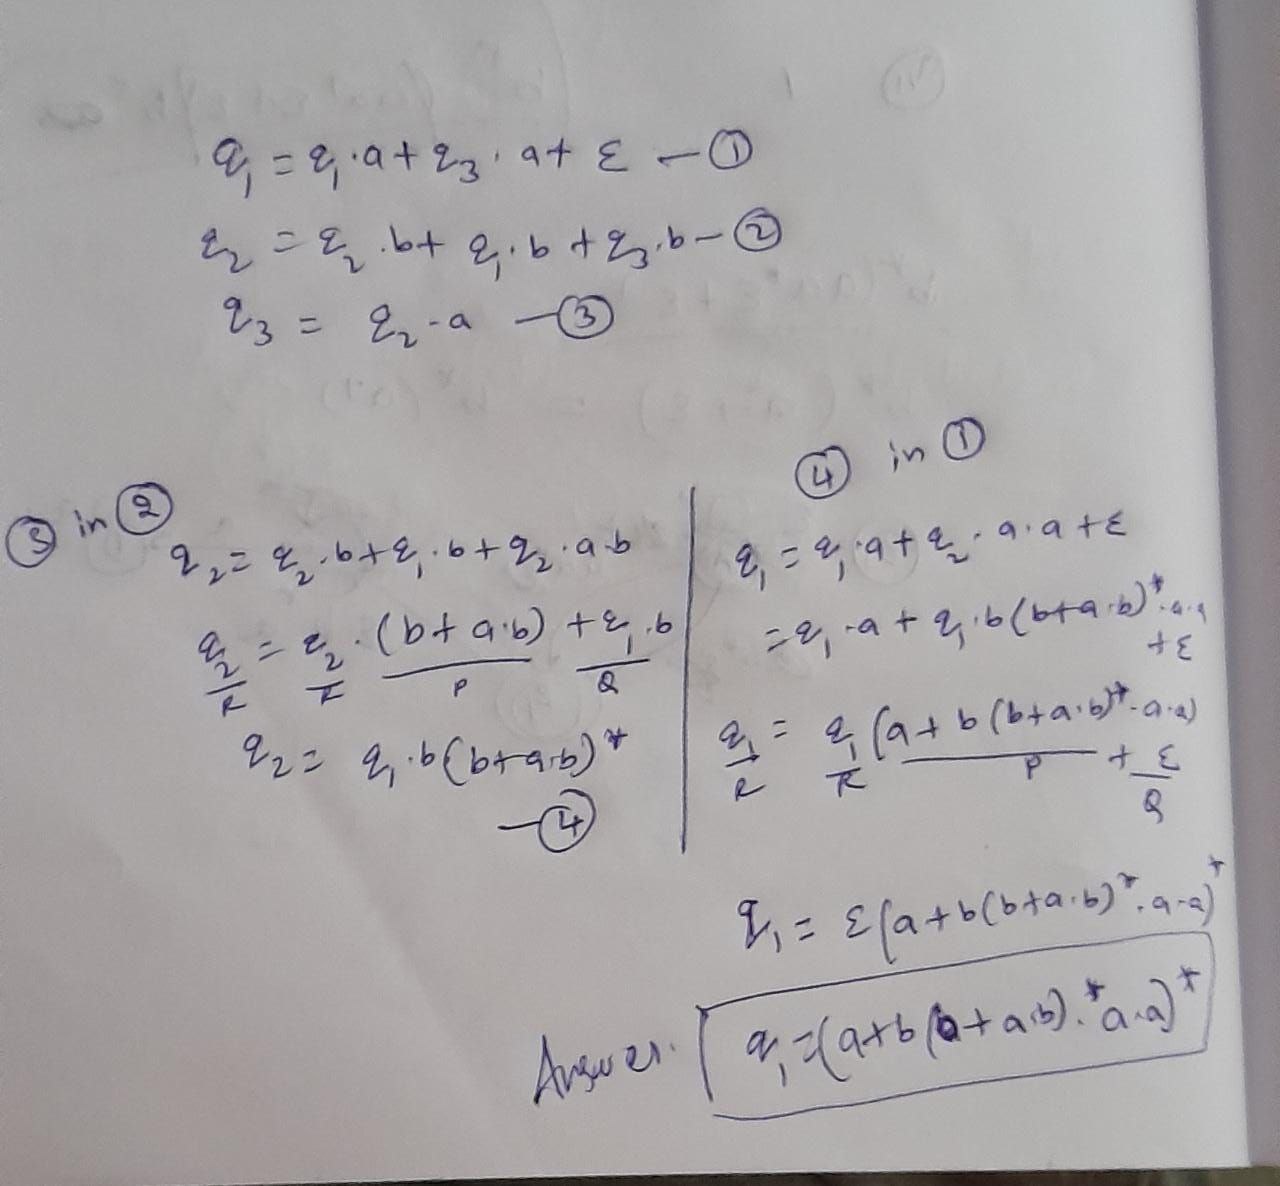 q₁ = q₁·a + q₃·a + ε — ①
q₂ = q₂·b + q₁·b + q₃·b — ②
q₃ = q₂·a — ③
③ in ②
q₂ = q₂·b + q₁·b + q₂·a·b
q₂ = q₂·(b + a·b) + q₁·b
R R P Q
q₂ = q₁·b(b+a·b)*
— ④
④ in ①
q₁ = q₁·a + q₂·a·a + ε
= q₁·a + q₁·b(b+a·b)*·a·a
+ ε
q₁ = q₁(a + b(b+a·b)*·a·a)
+ ε
R R P Q
q₁ = ε(a + b(b+a·b)*·a·a)*
Answer. q₁ = (a+b(b+a·b).*a·a)*